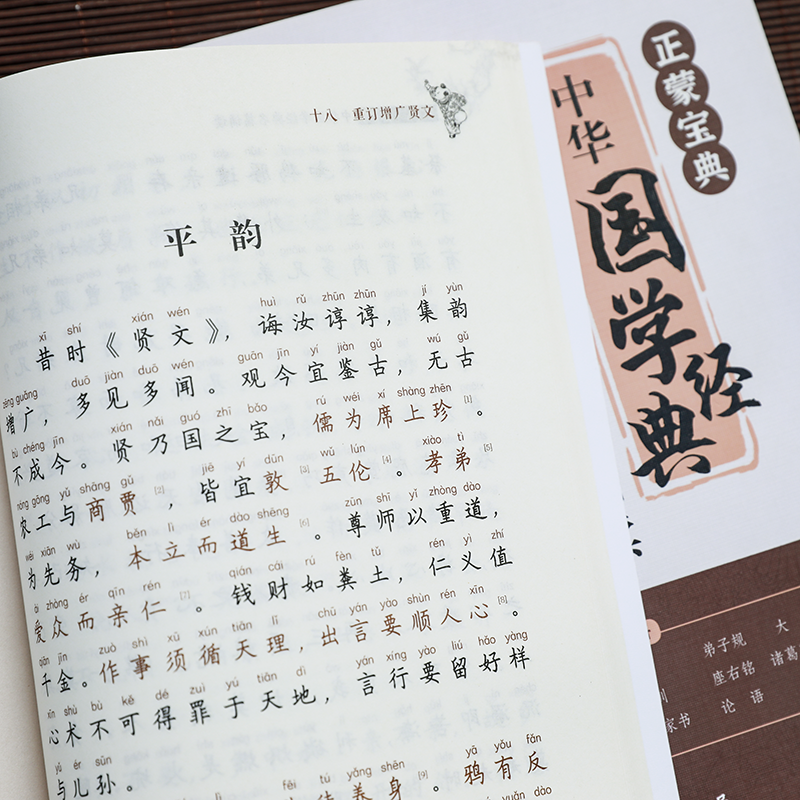 十八 重订增广贤文
平韵
xī shí xián wén huì rǔ zhūn zhūn jí yùn
昔时《贤文》，诲汝谆谆，集韵
zēng guǎng duō jiàn duō wén guān jīn yí jiàn gǔ wú gǔ
增广，多见多闻。观今宜鉴古，无古
bù chéng jīn xián nǎi guó zhī bǎo rú wéi xí shàng zhēn
不成今。贤乃国之宝，儒为席上珍[1]。
nóng gōng yǔ shāng gǔ jiē yí dūn wǔ lún xiào tì
农工与商贾[2]，皆宜敦[3]五伦[4]。孝弟[5]
wéi xiān wù běn lì ér dào shēng zūn shī yǐ zhòng dào
为先务，本立而道生[6]。尊师以重道，
ài zhòng ér qīn rén qián cái rú fèn tǔ rén yì zhí
爱众而亲仁[7]。钱财如粪土，仁义值
qiān jīn zuò shì xū xún tiān lǐ chū yán yào shùn rén xīn
千金。作事须循天理，出言要顺人心[8]。
xīn shù bù kě dé zuì yú tiān dì yán xíng yào liú hǎo yàng
心术不可得罪于天地，言行要留好样
yǔ ér sūn
与儿孙。
yǎng shēn yā yǒu fǎn
养身[9]。鸦有反
正蒙宝典
中华
国学
经典
弟子规 大
座右铭 诸葛
家书 论语